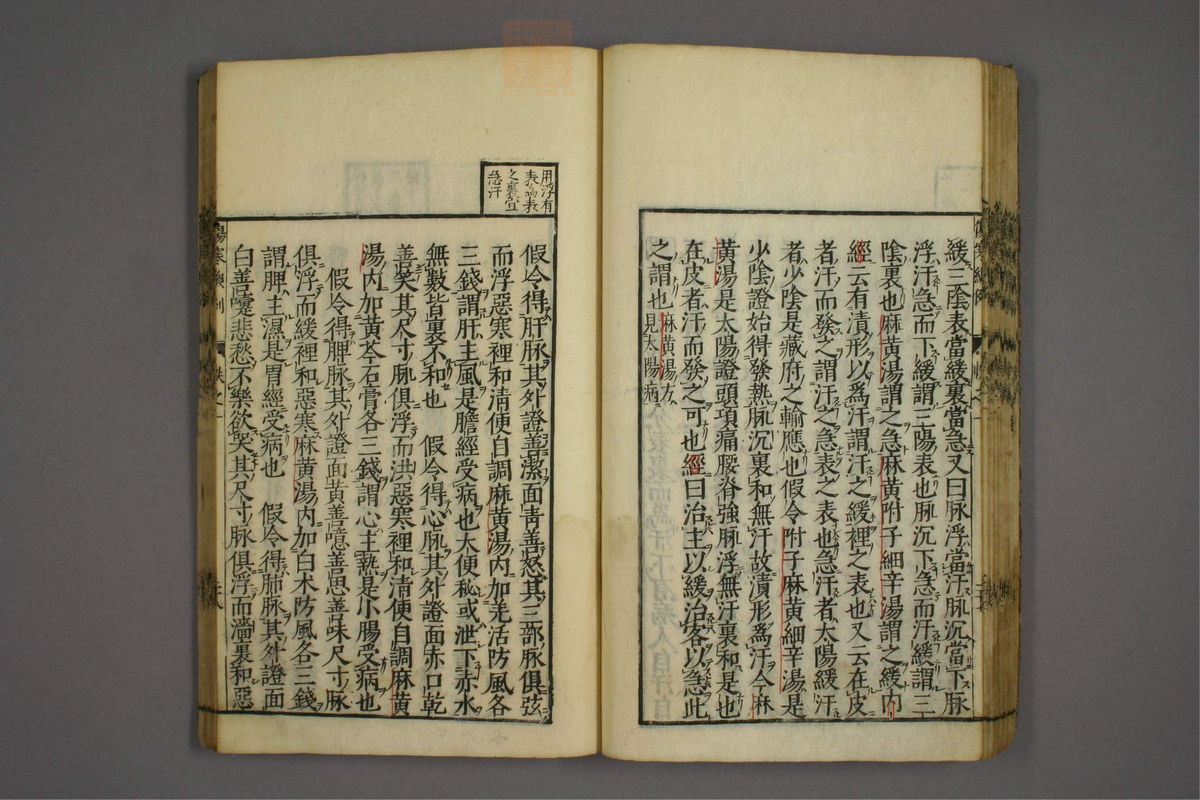 緩三陰表當緩裏當急又曰脉浮當汗脉沉當下脉
浮汗急而下緩謂三陽表也脉沉下急而汗緩謂三
陰裏也麻黄湯謂之急麻黄附子細辛湯謂之緩内
經云有漬形以爲汗謂汗之緩裡之表也又云在皮
者汗而發之謂汗之急表之表也急汗者太陽緩汗
者少陰是藏府之輸應也假令附子麻黄細辛湯是
少陰證始得發熱脉沉裏和無汗故漬形爲汗今麻
黄湯是太陽證頭項痛腰脊強脉浮無汗裏和是也
在皮者汗而發之可也經曰治主以緩治客以急此
之謂也麻黄湯方
見太陽病
用浮有
表爲表
之裏宜
急汗
假令得肝脉其外證善潔面靑善怒其三部脉俱弦
而浮惡寒裡和淸便自調麻黄湯内加羌活防風各
三錢謂肝主風是膽經受病也大便秘或泄下赤水
無數皆裏不和也 假令得心脉其外證面赤口乾
善笑其尺寸脉俱浮而洪惡寒裡和淸便自調麻黄
湯内加黄芩石膏各三錢謂心主熱是小腸受病也
假令得脾脉其外證面黄善噫善思善味尺寸脉
俱浮而緩裡和惡寒麻黄湯内加白术防風各三錢
謂脾主濕是胃經受病也 假令得肺脉其外證面
白善嚏悲愁不樂欲哭其尺寸脉俱浮而濇裏和惡